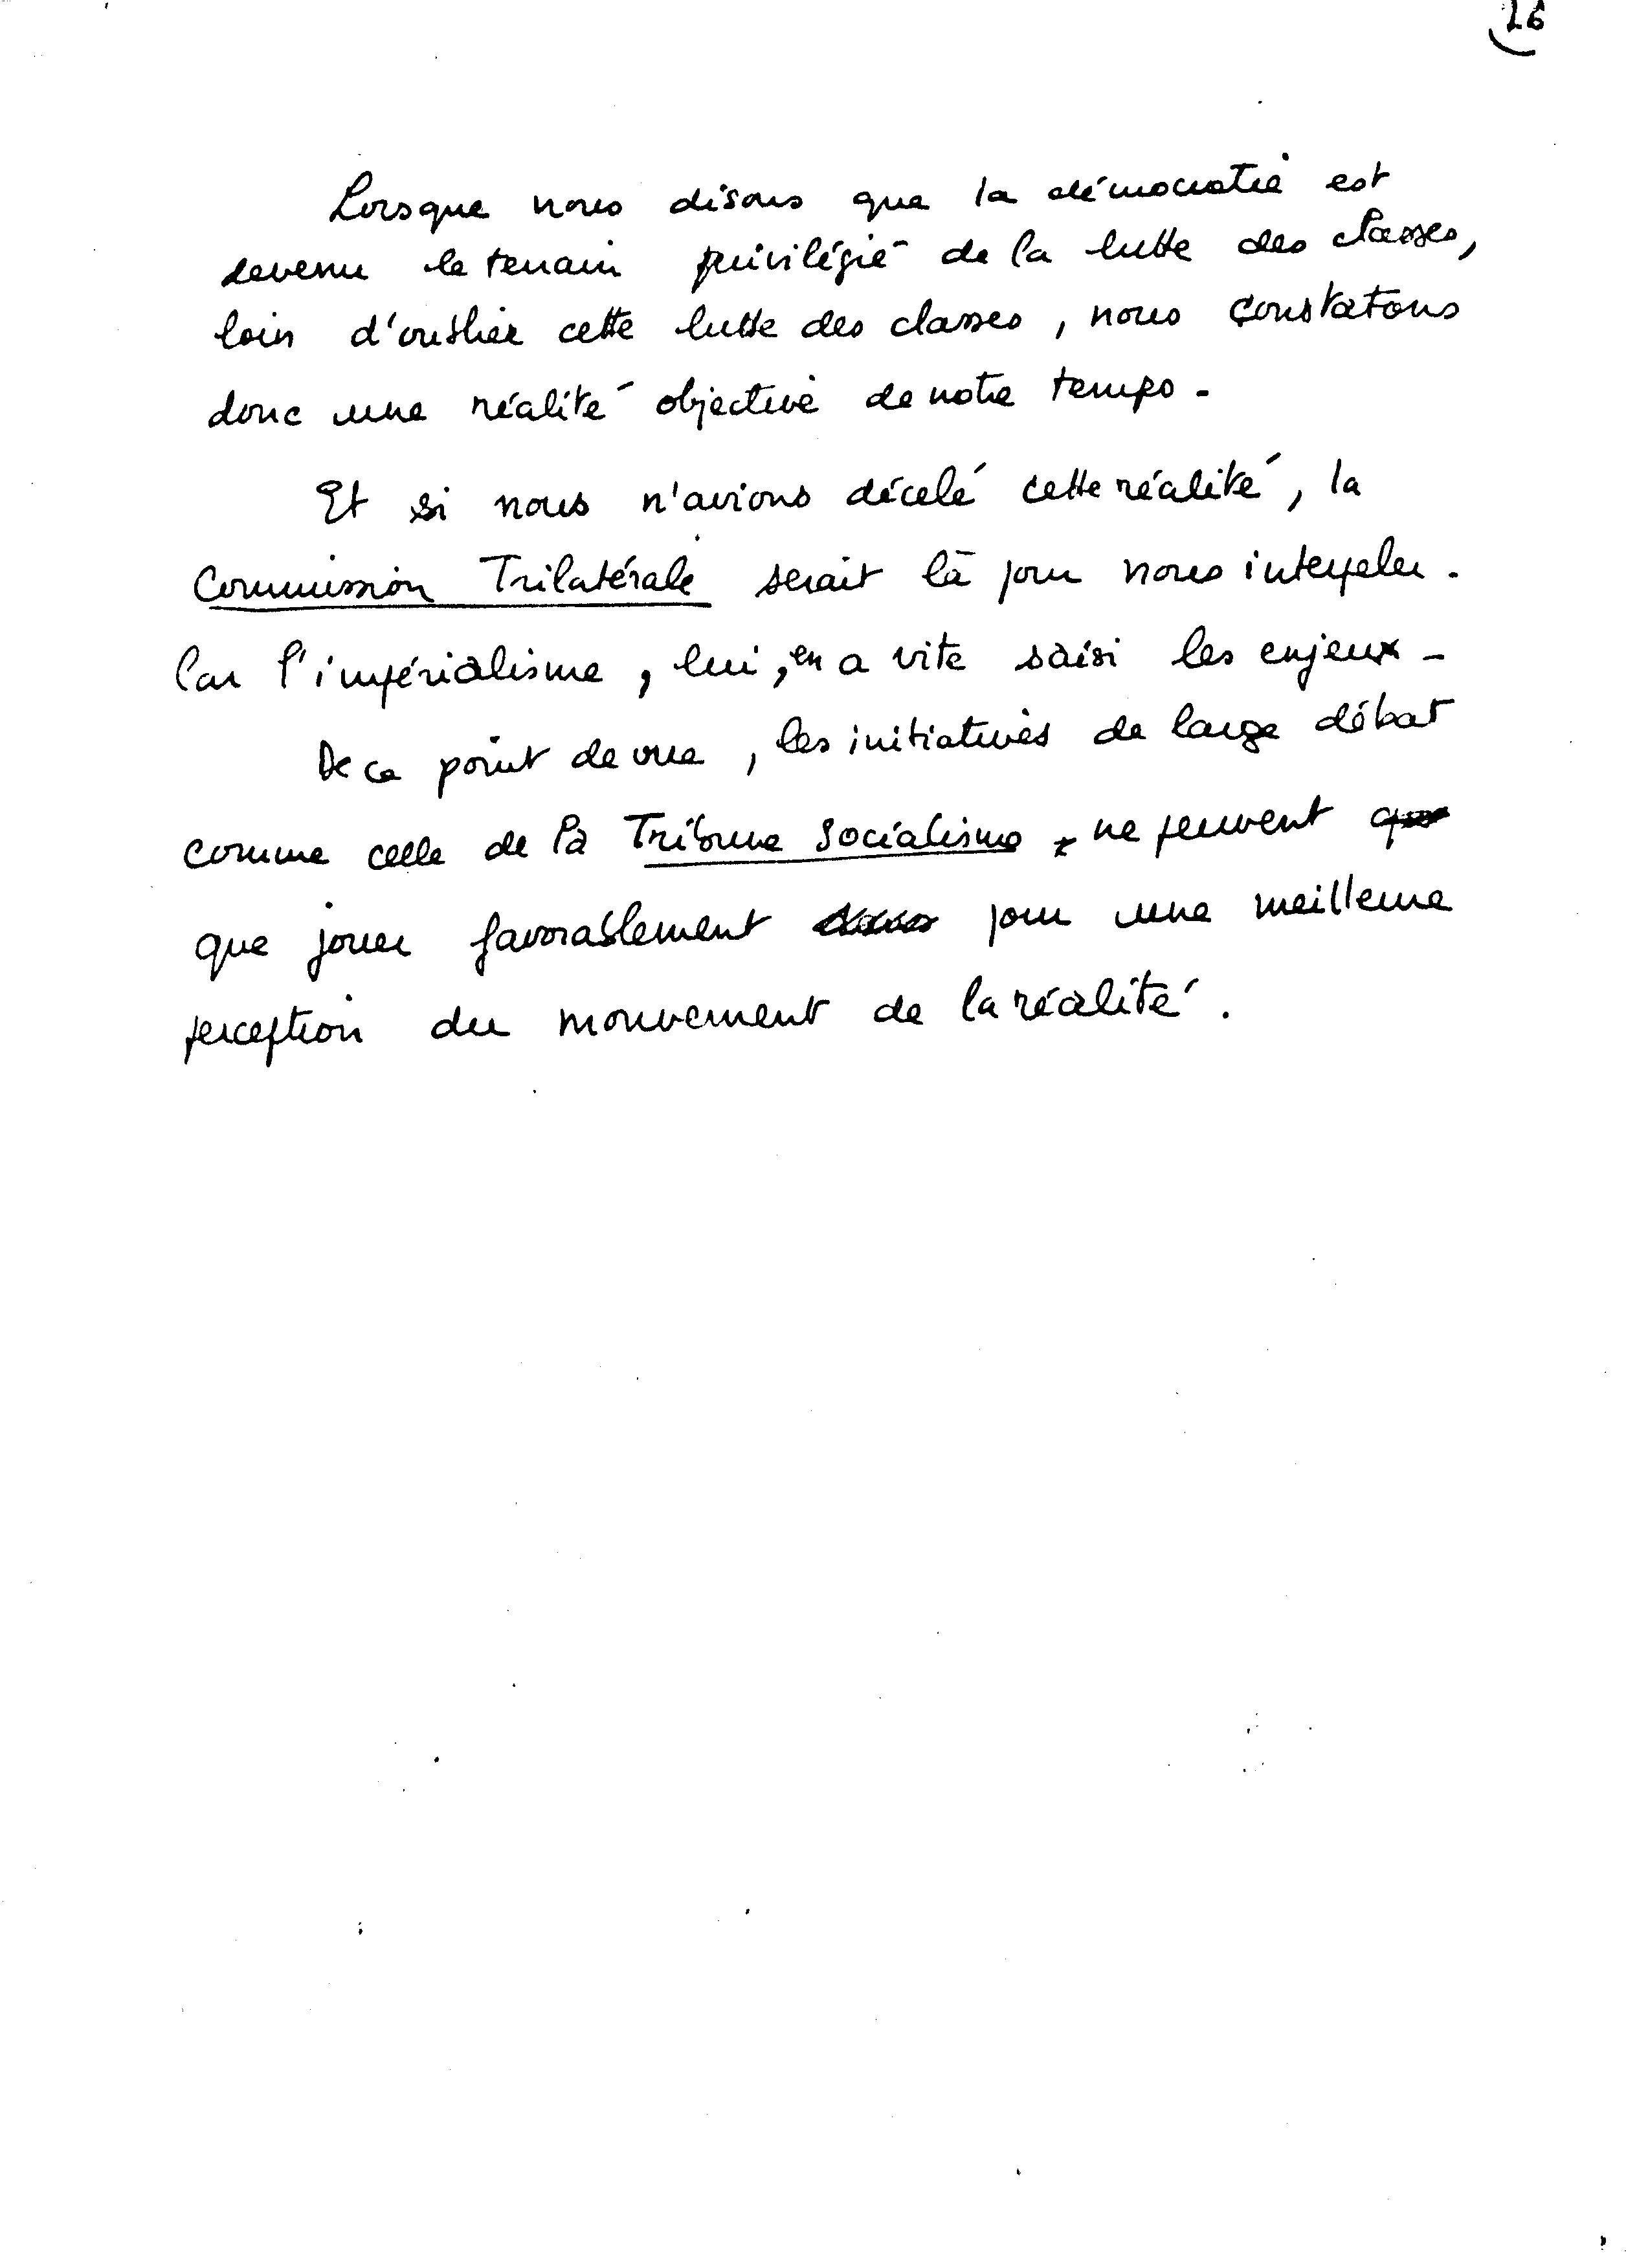 26
Lorsque nous disons que la démocratie est
devenu le terrain privilégié de la lutte des classes,
loin d'oublier cette lutte des classes, nous constatons
donc une réalité objective de notre temps -
Et si nous n'avions décelé cette réalité, la
Commission Trilatérale serait là pour nous interpeler.
Car l'impérialisme, lui, en a vite saisi les enjeux -
De ce point de vue, les initiatives de large débat
comme celle de la Tribune Socialisme, ne peuvent que
que jouer favorablement pour une meilleure
perception du mouvement de la réalité.